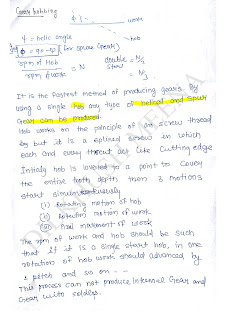 Gear hobbing
φ } - - - work
hob
ψ = helix angle
φ = 90-ψ (for spur Gear)
rpm of Hob / rpm of work = N double = N/2 start = N/3
It is the fastest method of producing gears. By
using a single hob any type of helical and spur
Gear can be produced.
Hob works on the principle of an screw thread
by but it is a splined screw in which
each and every thread act like cutting edge
Initialy hob is leveled to a point to cover
the entire tooth depth then 3 motions
start simultaneously
(i) Rotating motion of hob
(ii) Rotating motion of work
(iii) feed movement of work
The rpm of work and hob should be such
that if it is a single start hob, in one
rotation of hob work should advanced by
1 pitch and so on - -
This process can not produce Internal Gear and
Gear with solders.